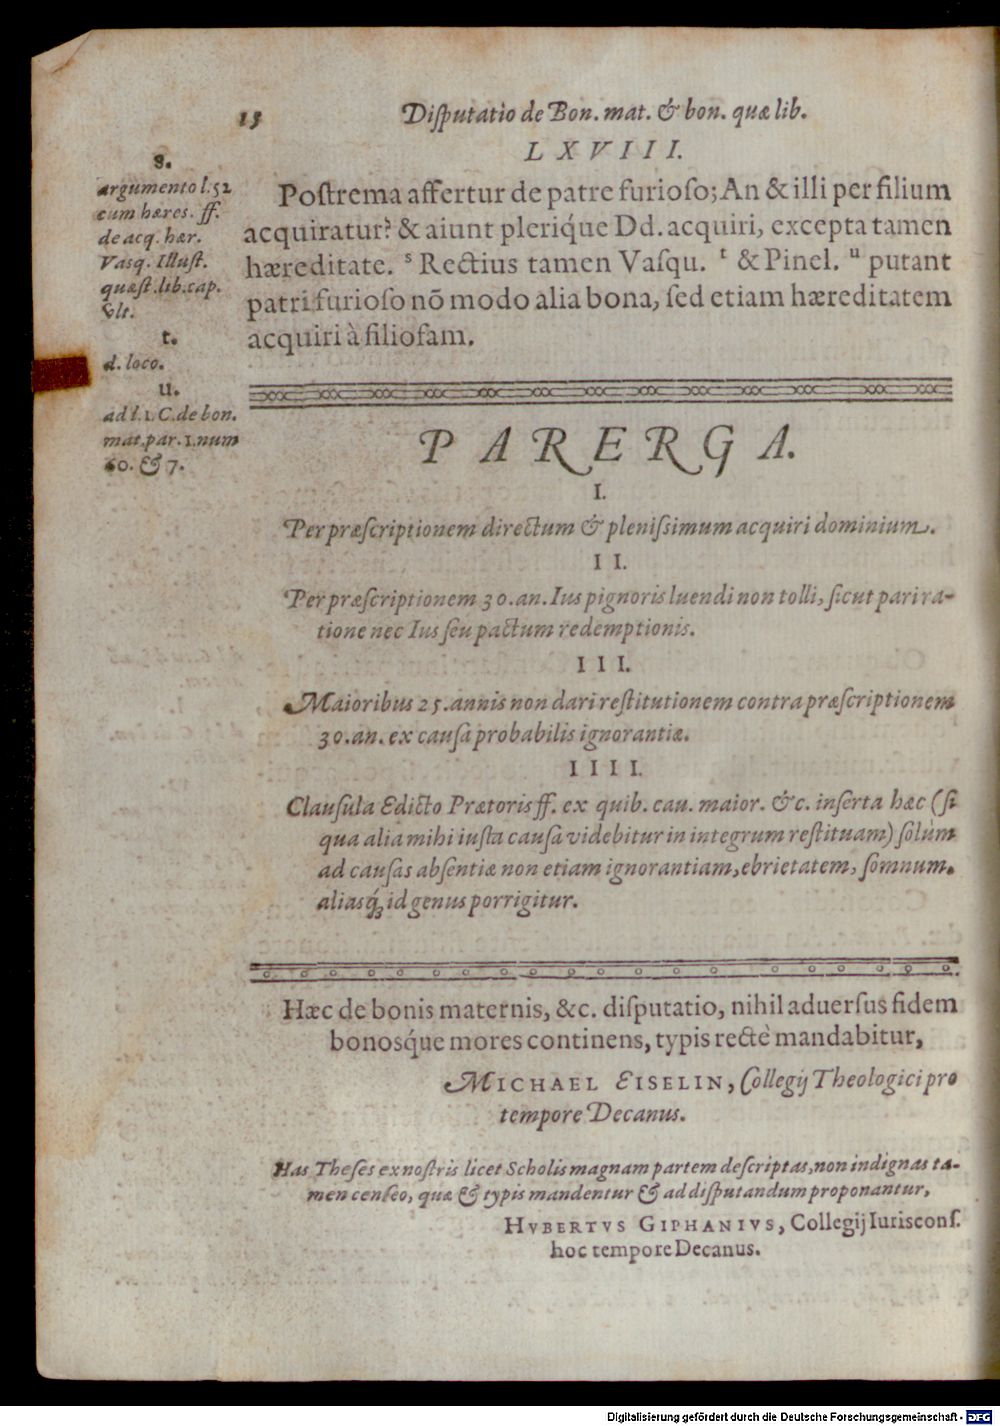 15 Disputatio de Bon. mat. & bon. quæ lib.
LXVIII.
Postrema affertur de patre furioso; An & illi per filium
acquiratur? & aiunt pleriq́ue Dd. acquiri, excepta tamen
hæreditate. s Rectius tamen Vasqu. t & Pinel. u putant
patri furioso nõ modo alia bona, sed etiam hæreditatem
acquiri à filiofam.
s.
argumento l. 52
cum hæres. ff.
de acq. hær.
Vasq. Illust.
quæst. lib. cap.
vlt.
t.
d. loco.
u.
ad l. 1. C. de bon.
mat. par. 1. num
60. & 7.
PARERGA.
I.
Per præscriptionem directum & plenissimum acquiri dominium.
II.
Per præscriptionem 30. an. Ius pignoris luendi non tolli, sicut pari ra-
tione nec Ius seu pactum redemptionis.
III.
Maioribus 25. annis non dari restitutionem contra præscriptionem
30. an. ex causa probabilis ignorantiæ.
IIII.
Clausula Edicto Prætoris ff. ex quib. cau. maior. &c. inserta hæc (si
qua alia mihi iusta causa videbitur in integrum restituam) solùm
ad causas absentiæ non etiam ignorantiam, ebrietatem, somnum.
aliasq́ꝫ id genus porrigitur.
Hæc de bonis maternis, &c. disputatio, nihil aduersus fidem
bonosq́ue mores continens, typis rectè mandabitur,
MICHAEL EISELIN, Collegij Theologici pro
tempore Decanus.
Has Theses ex nostris licet Scholis magnam partem descriptas, non indignas ta-
men censeo, quæ & typis mandentur & ad disputandum proponantur,
HVBERTVS GIPHANIVS, Collegij Iuriscons.
hoc tempore Decanus.
Digitalisierung gefördert durch die Deutsche Forschungsgemeinschaft - DFG